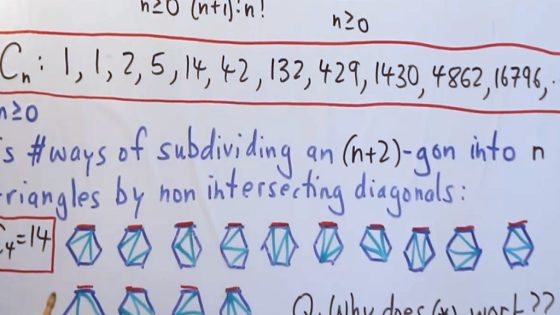 n≥0 (n+1)!n! n≥0
Cn: 1, 1, 2, 5, 14, 42, 132, 429, 1430, 4862, 16796,
n≥0
is #ways of subdividing an (n+2)-gon into n
triangles by non intersecting diagonals:
C4=14
Q. Why does (*) work??